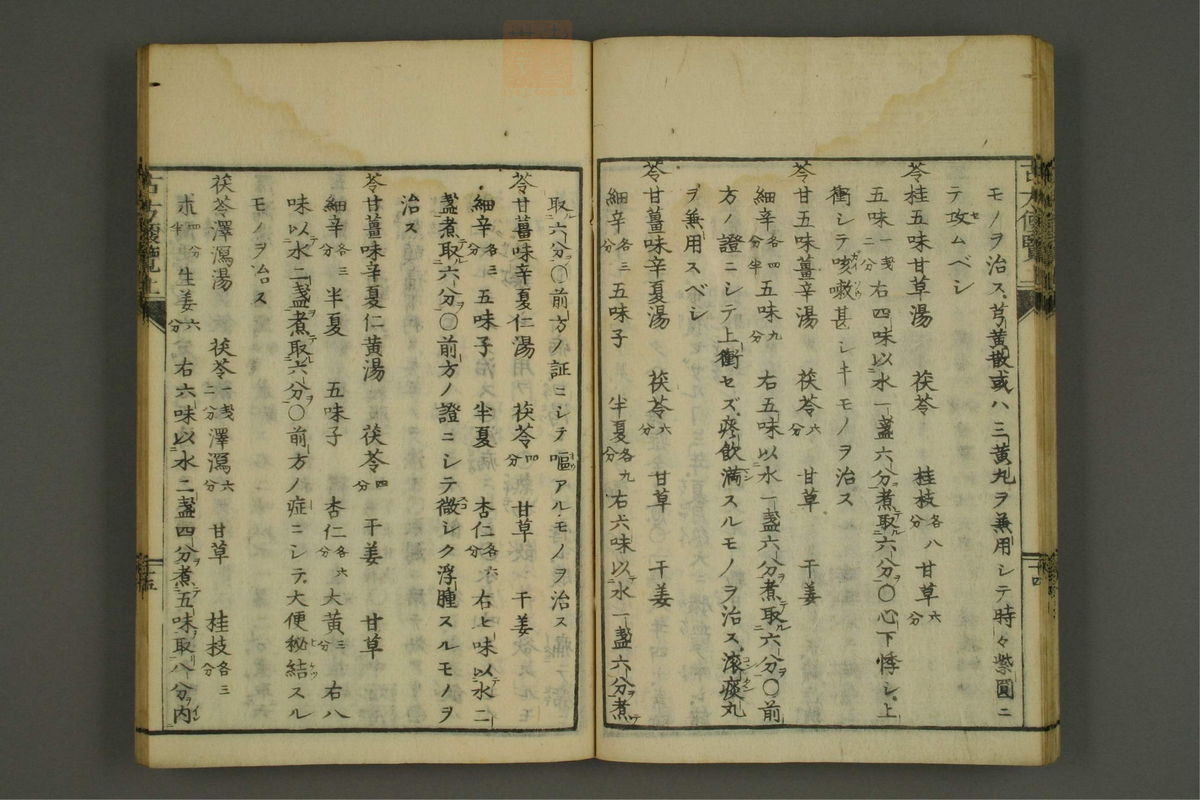 モノヲ治ス芎黄散或ハ三黄丸ヲ兼用シテ時々紫圓ニ
テ攻ムベシ
苓桂五味甘草湯 茯苓 桂枝各八分 甘草六分
五味二分 右四味以水一盞六分煮取六分〇心下悸シ上
衝シテ咳嗽甚シキモノヲ治ス
苓甘五味薑辛湯 茯苓六分 甘草 干姜
細辛各四分半 五味九分 右五味以水一盞六分煮取六分〇前
方ノ證ニシテ上衝セズ痰飲満スルモノヲ治ス滚痰丸
ヲ兼用スベシ
苓甘薑味辛夏湯 茯苓六分 甘草 干姜
細辛各三分 五味子 半夏各九分 右六味以水一盞六分煮
取六分〇前方ノ証ニシテ嘔アルモノヲ治ス
苓甘薑味辛夏仁湯 茯苓四分 甘草 干姜
細辛各三分 五味子 半夏 杏仁各六分 右七味以水二
盞煮取六分〇前方ノ證ニシテ微シク浮腫スルモノヲ
治ス
苓甘薑味辛夏仁黄湯 茯苓四分 干姜 甘草
細辛各三分 半夏 五味子 杏仁各六分 大黄三分 右八
味以水二盞煮取六分〇前方ノ症ニシテ大便秘結スル
モノヲ治ス
茯苓澤瀉湯 茯苓一戔二分 澤瀉六分 甘草 桂枝各三分
朮四分半 生姜六分 右六味以水二盞四分煮五味取八分内
古方便覧上
十四
古方便覧上
十五